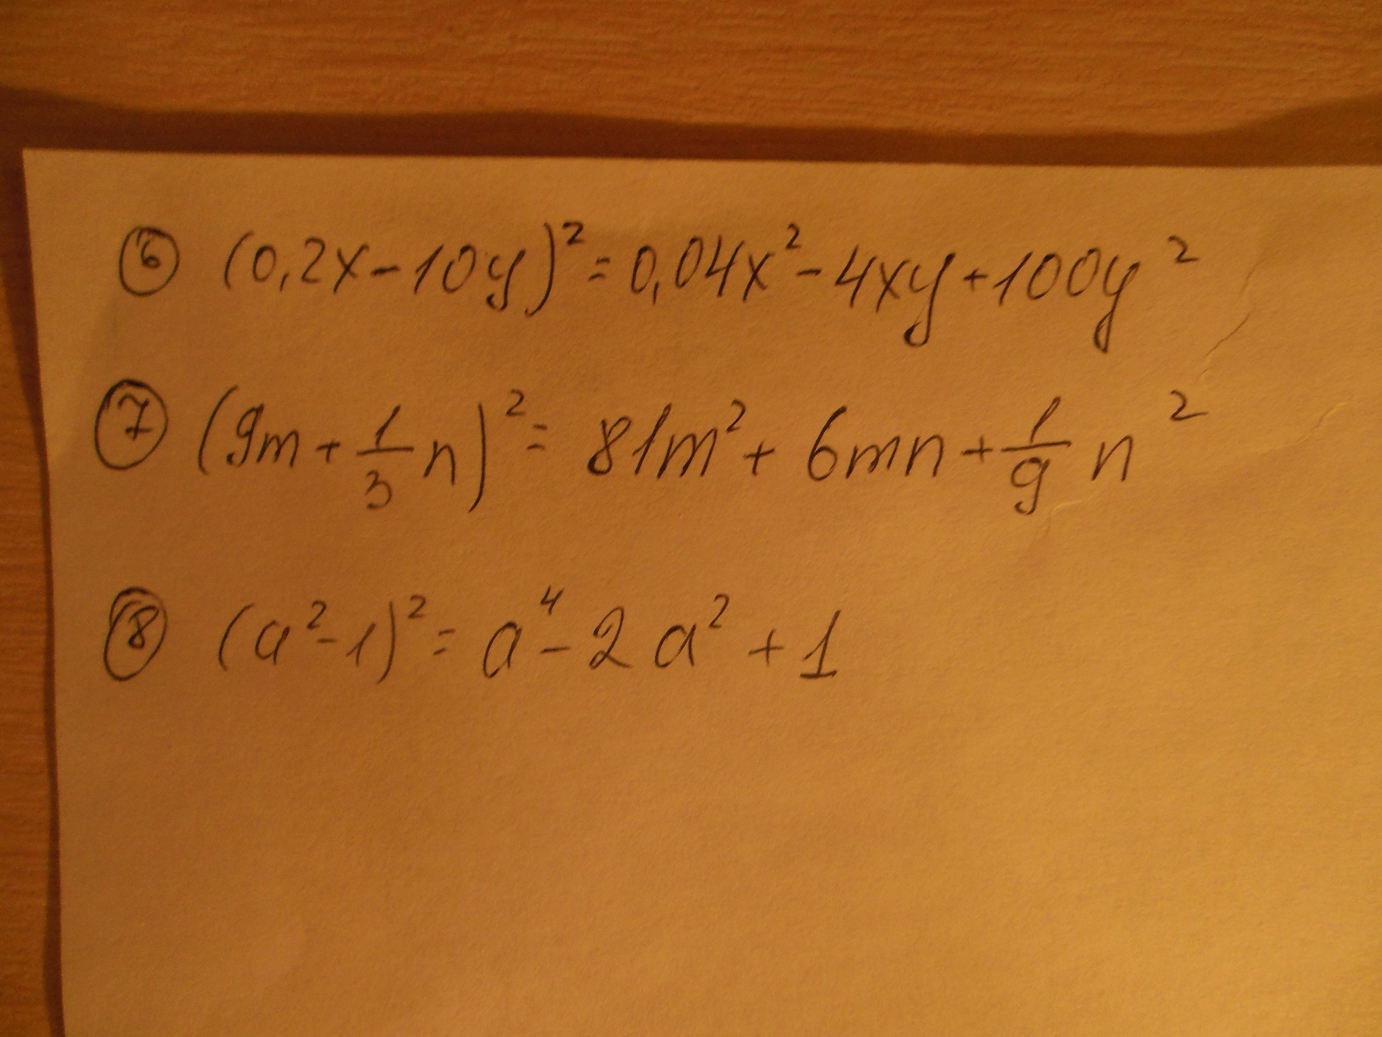 ⑥ (0,2x-10y)²=0,04x²-4xy+100y²
⑦ (9m+1/3n)²= 81m²+6mn+1/9n²
⑧ (a²-1)²= a⁴-2a²+1